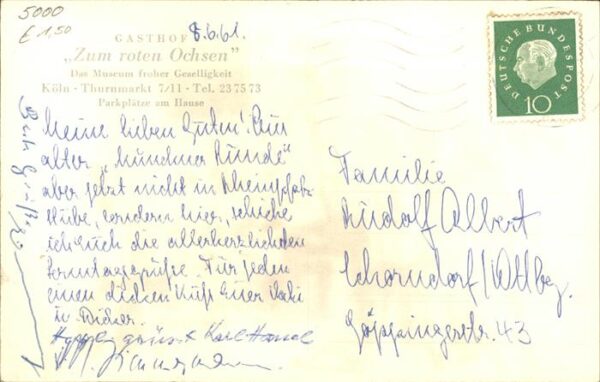 5000
£ 1,50
GASTHOF
8.6.61.
„Zum roten Ochsen"
Das Museum froher Geselligkeit
Köln · Thurnmarkt 7/11 · Tel. 23 75 73
Parkplätze am Hause
DEUTSCHE BUNDESPOST
10
Meine lieben Guten! Aus
alter „Münchner Runde"
aber jetzt nicht in Rheinpfalz-
stube, sondern hier, schicke
ich euch die allerherzlichsten
Sonntagsgrüße. Für jeden
einen dicken Kuß Euer
u.
grüsst Karl
Beste Grüße
Familie
Rudolf Albert
Schorndorf/Wttbg.
Göppingerstr. 43